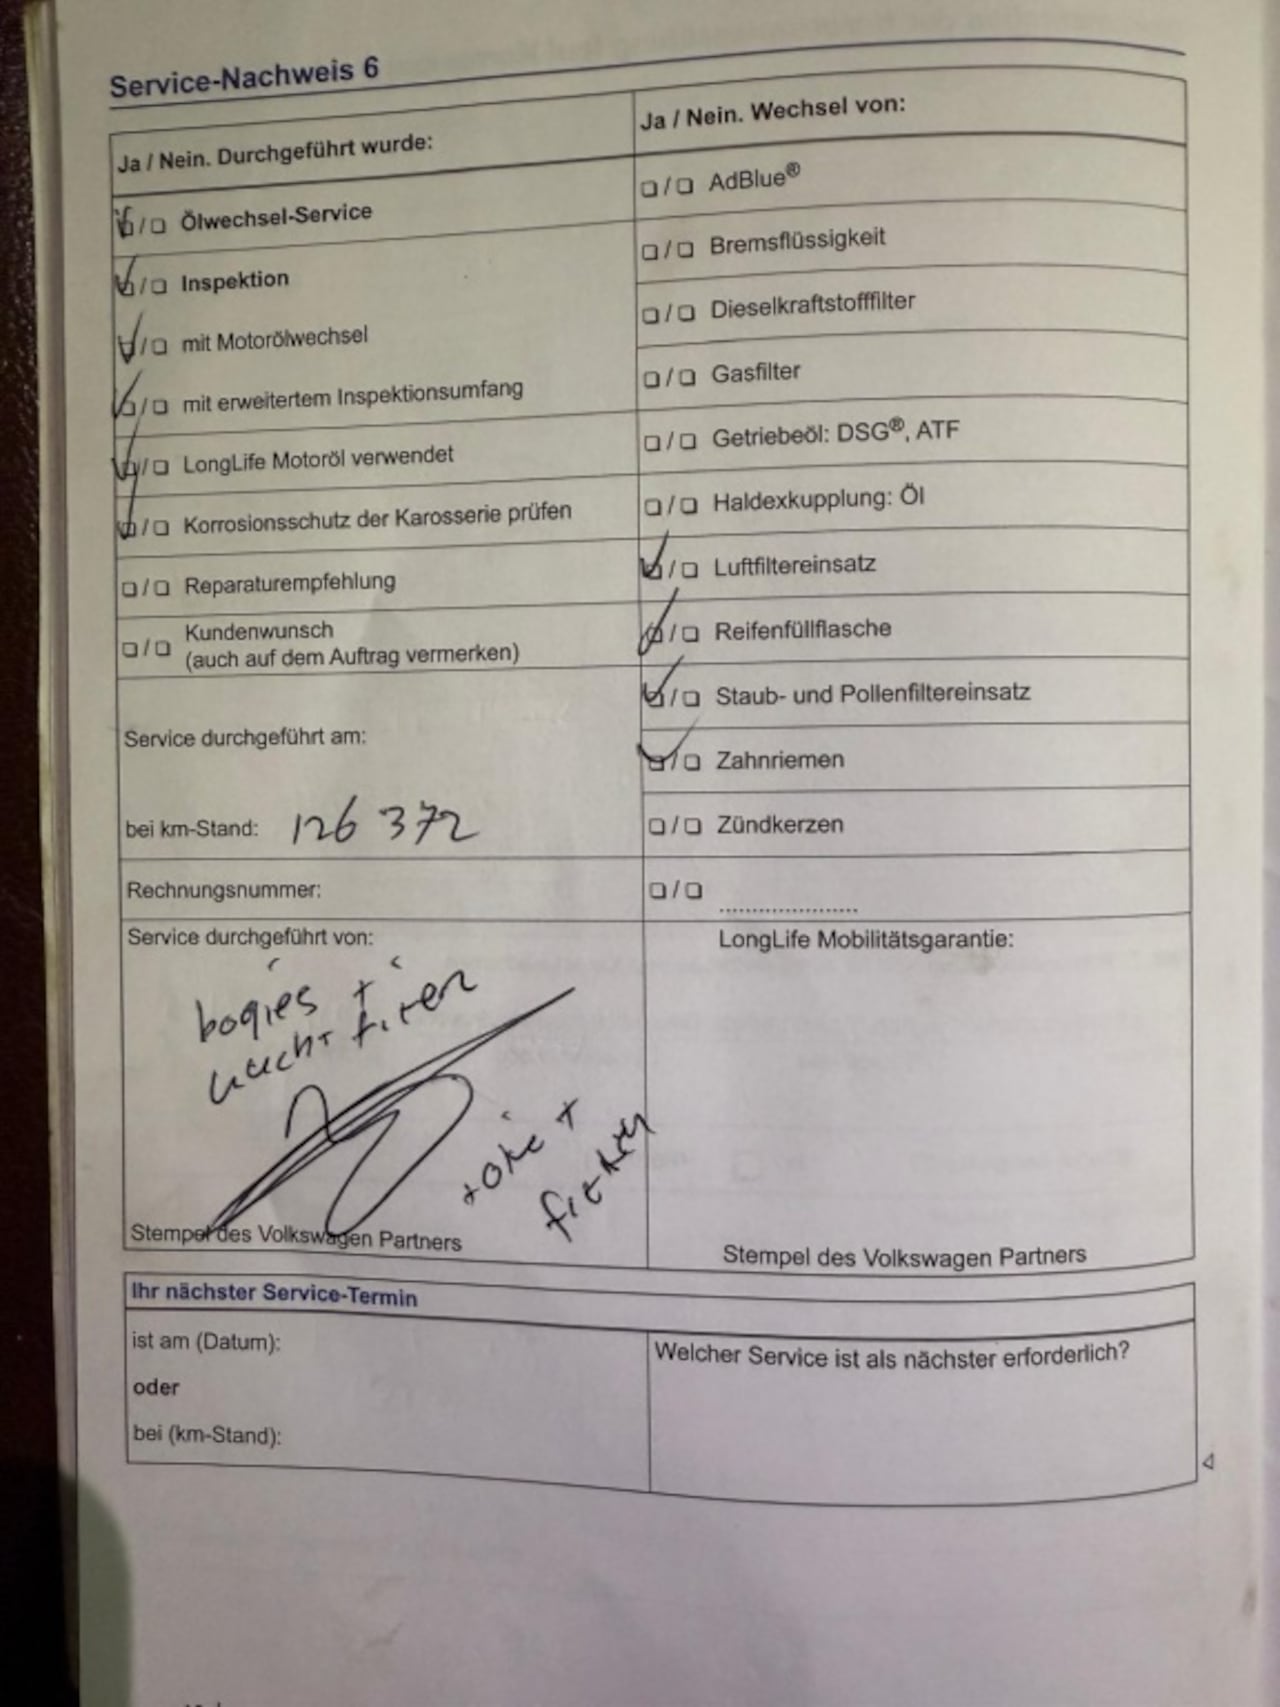 Service-Nachweis 6
Ja / Nein. Durchgeführt wurde:
☑/☐ Ölwechsel-Service
☑/☐ Inspektion
☑/☐ mit Motorölwechsel
☑/☐ mit erweitertem Inspektionsumfang
☑/☐ LongLife Motoröl verwendet
☑/☐ Korrosionsschutz der Karosserie prüfen
☐/☐ Reparaturempfehlung
☐/☐ Kundenwunsch
(auch auf dem Auftrag vermerken)
Service durchgeführt am:
bei km-Stand: 126 372
Rechnungsnummer:
Service durchgeführt von:
bogies +
Stempel des Volkswagen Partners
Ja / Nein. Wechsel von:
☐/☐ AdBlue®
☐/☐ Bremsflüssigkeit
☐/☐ Dieselkraftstofffilter
☐/☐ Gasfilter
☐/☐ Getriebeöl: DSG®, ATF
☐/☐ Haldexkupplung: Öl
☑/☐ Luftfiltereinsatz
☑/☐ Reifenfüllflasche
☑/☐ Staub- und Pollenfiltereinsatz
☑/☐ Zahnriemen
☐/☐ Zündkerzen
☐/☐ ....................
LongLife Mobilitätsgarantie:
Stempel des Volkswagen Partners
Ihr nächster Service-Termin
ist am (Datum):
oder
bei (km-Stand):
Welcher Service ist als nächster erforderlich?